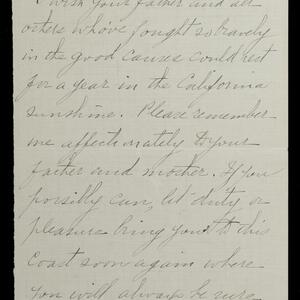 I wish your father and all
others who've fought so bravely
in the good causes could rest
for a year in the California
sunshine. Please remember
me affectionately to your
father and mother. If you
possibly can, let duty or
pleasure bring you to this
Coast soon again where
you will always be sure